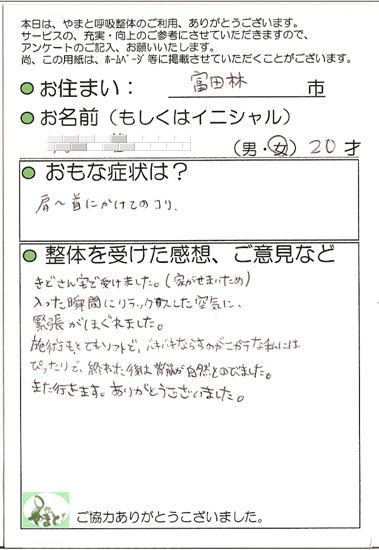 本日は、やまと呼吸整体のご利用、ありがとうございます。
サービスの、充実・向上のご参考にさせていただきますので、
アンケートのご記入、お願いいたします。
尚、この用紙は、ﾎｰﾑﾍﾟｰｼﾞ等に掲載させていただくことがございます。
お住まい： 富田林 市
お名前（もしくはイニシャル）
（男・女）20才
おもな症状は？
肩〜首にかけてのコリ、
整体を受けた感想、ご意見など
きどさん宅で受けました。（家がせまいため）
入った瞬間にリラックスした空気に、
緊張がほぐれました。
施術もとてもソフトで、バキバキならすのがニガテな私には
ぴったりで、終わた後は背筋が自然とのびました。
また行きます。ありがとうございました。
やまと
ご協力ありがとうございました。